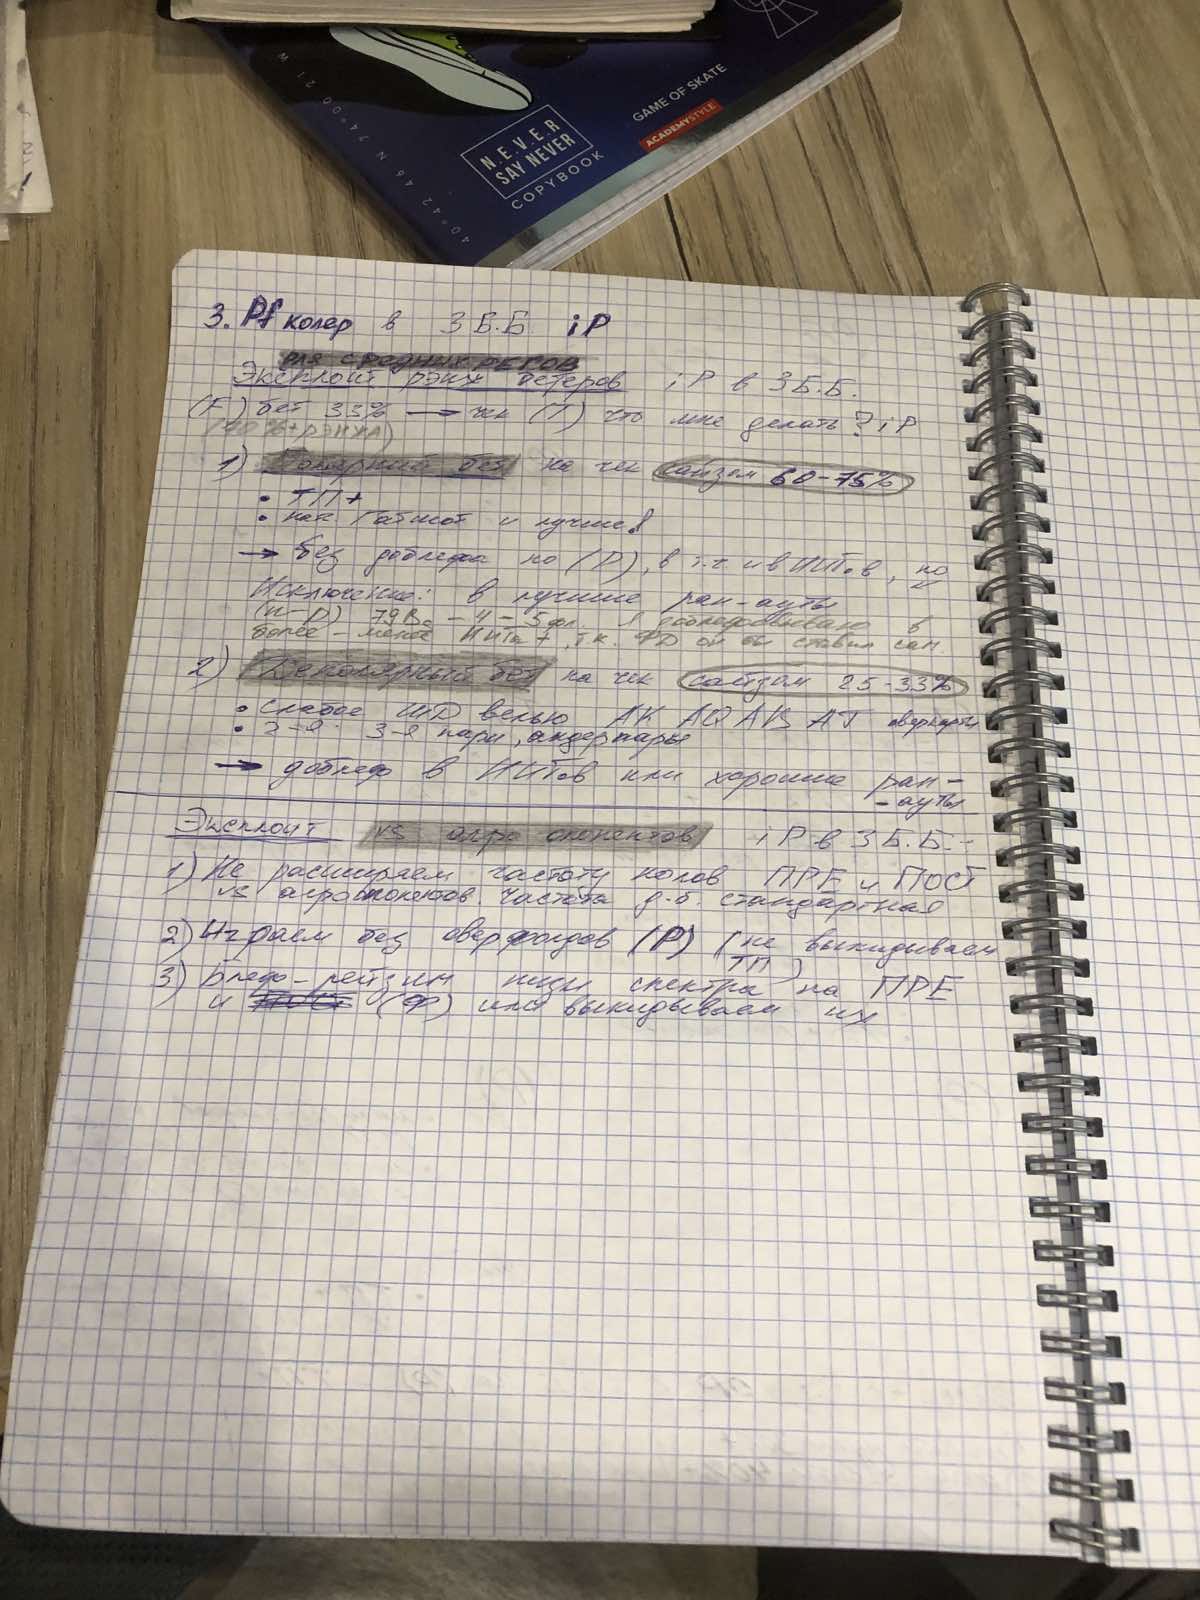 40°42'46 N 74°00'21 W
N.E.V.E.R
SAY NEVER
COPYBOOK
GAME OF SKATE
ACADEMYSTYLE
3. Pf колер в 3 Б.Б. iP
для средних РЕГОВ
Эксплоит рэнж бетеров iP в 3 Б.Б.
(F) бет 33% → чек (T) что мне делать? iP
1) Полярный бет на чек сайзом 60-75%
• ТП+
• и лучше!
→ без доблефа по (Р), в т.ч. и в ИИТов, но
Исключение: в лучшие ран-ауты
- 4 - 5 фл. Я в
более-менее , т.к. ФД он бы ставил сам.
2) Деполярный бет на чек сайзом 25-33%
• слабое ШД велью АК AQ AT оверкарты
• 2-я 3-я пары, андерпары
→ доблеф в ИИТов или хорошие ран-
-ауты
Эксплоит vs агро опонентов iP в 3 Б.Б.
1) Не расширяем частоту колов ПРЕ и ПОСТ
vs агрооппонентов. Частота д.б. стандартная
2) Играем без оверфолдов (Р) (не выкидываем
ТП)
3) Блеф-рейзим низы спектра на ПРЕ
и (Ф) или выкидываем их